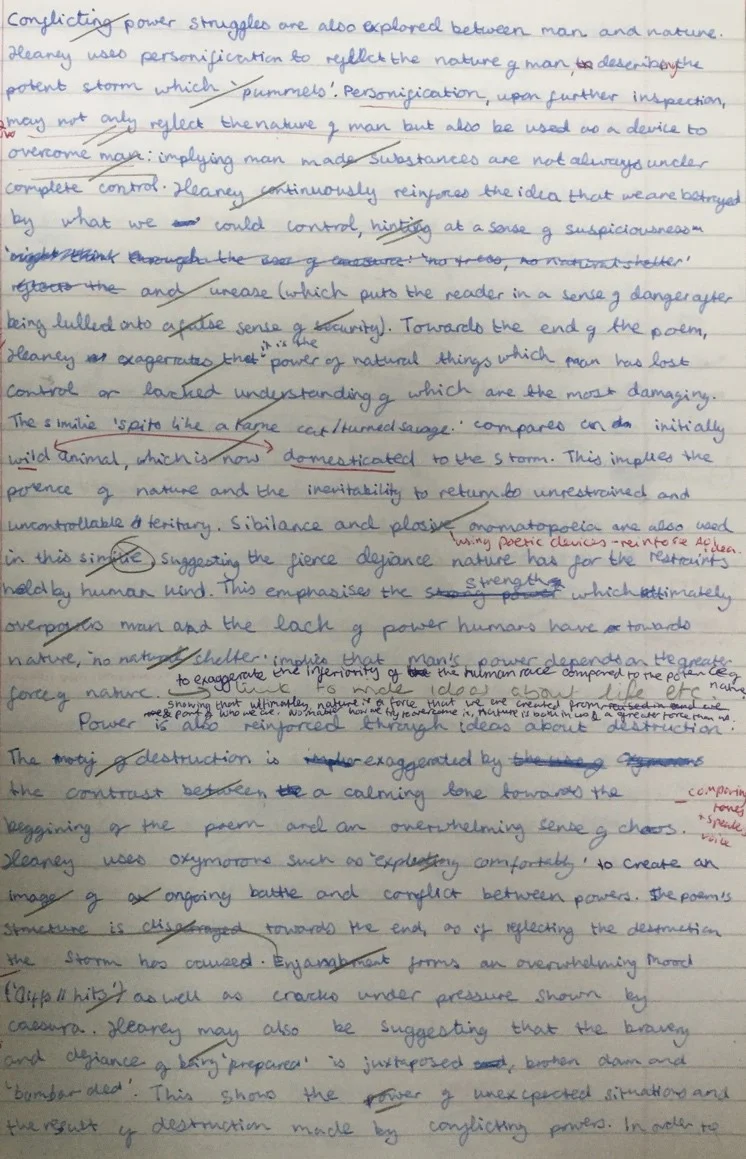 Conflicting power struggles are also explored between man and nature.
Heaney uses personification to reflect the nature of man, describing the
potent storm which 'pummels'. Personification, upon further inspection,
may not only reflect the nature of man but also be used as a device to
overcome man: implying man made substances are not always under
complete control. Heaney continuously reinforces the idea that we are betrayed
by what we could control, hinting at a sense of suspiciousness
through the use of caesura: 'no trees, no natural shelter'
reflects the and unease (which puts the reader in a sense of danger after
being lulled into a false sense of security). Towards the end of the poem,
it is the
Heaney exagerates that power of natural things which man has lost
control or lacked understanding of which are the most damaging.
The similie 'spits like a tame cat/turned savage.' compares an initially
wild animal, which is now domesticated to the storm. This implies the
potence of nature and the inevitability to return to unrestrained and
uncontrollable teritary. Sibilance and plosive onomatopoeia are also used
using poetic devices - reinforse idea.
in this similie suggesting the fierce defiance nature has for the restraints
strength
held by human kind. This emphasises the strong power which ultimately
overpowers man and the lack of power humans have towards
nature, 'no natural shelter' implies that man's power depends on the greater
to exaggerate the inferiority of the human race compared to the potence of nature
force of nature. link to wide ideas about life etc
showing that ultimatley, nature is a force that we are created from and are
part of who we are. No matter how we try to overcome it, nature is born in us & a greater force than me.
Power is also reinforced through ideas about destruction.
The of destruction is exaggerated by the use of oxymorons
the contrast between a calming tone towards the
comparing
tones
+ speakers
voice
beggining of the poem and an overwhelming sense of chaos.
Heaney uses oxymorons such as 'exploding comfortably' to create an
image of ongoing battle and conflict between powers. The poem's
structure is towards the end, as if reflecting the destruction
the storm has caused. Enjambment forms an overwhelming mood
('Cliffs // hits') as well as cracks under pressure shown by
caesura. Heaney may also be suggesting that the bravery
and defiance of being 'prepared' is juxtaposed broken down and
'bombarded'. This shows the power of unexpected situations and
the result of destruction made by conflicting powers. In order to